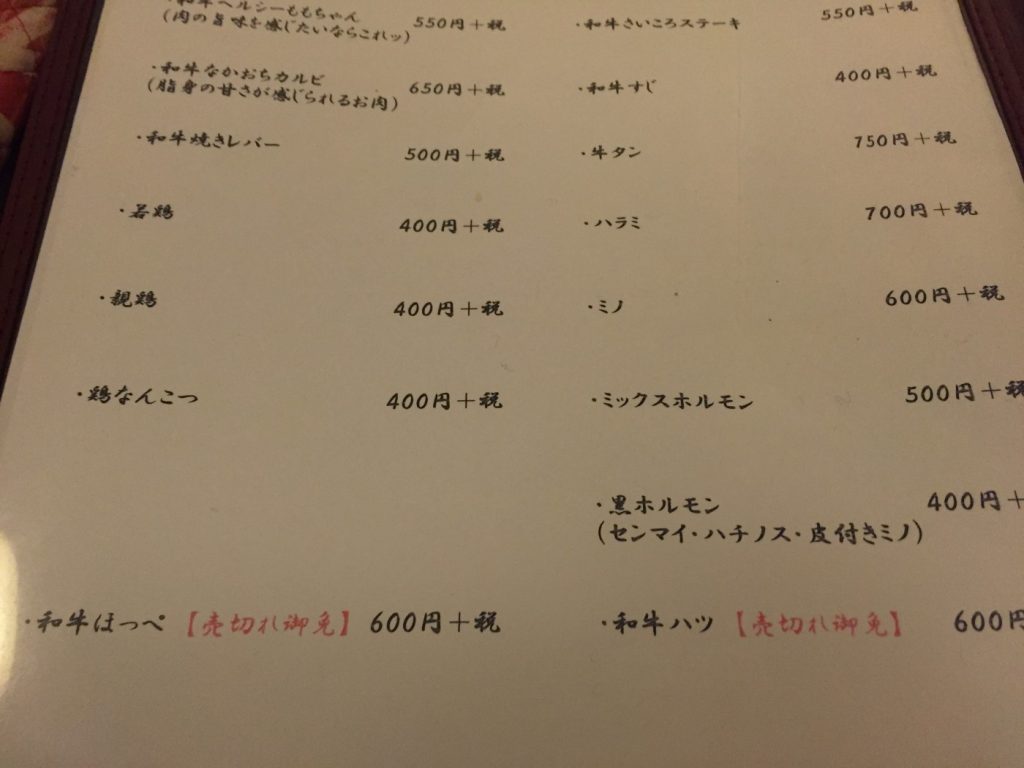 ・和牛ヘルシーももちゃん
(肉の旨味を感じたいならこれッ) 550円+税
・和牛なかおちカルビ
(脂身の甘さが感じられるお肉) 650円+税
・和牛焼きレバー 500円+税
・若鶏 400円+税
・親鶏 400円+税
・鶏なんこつ 400円+税
・和牛ほっぺ【売切れ御免】 600円+税
・和牛さいころステーキ 550円+税
・和牛すじ 400円+税
・牛タン 750円+税
・ハラミ 700円+税
・ミノ 600円+税
・ミックスホルモン 500円+税
・黒ホルモン 400円+
(センマイ・ハチノス・皮付きミノ)
・和牛ハツ【売切れ御免】 600円